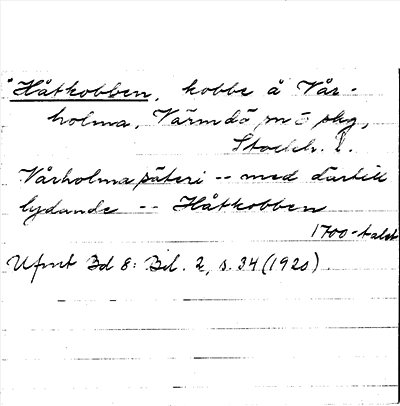 *Håtkobben, kobbe å Vår-
holma, Värmdö sn o skg,
Stockh. l.
Vårholma säteri -- med därtill
lydande -- Håtkobben
1700-talet
Ufmt Bd 8: Bil. 2, s. 34 (1920).